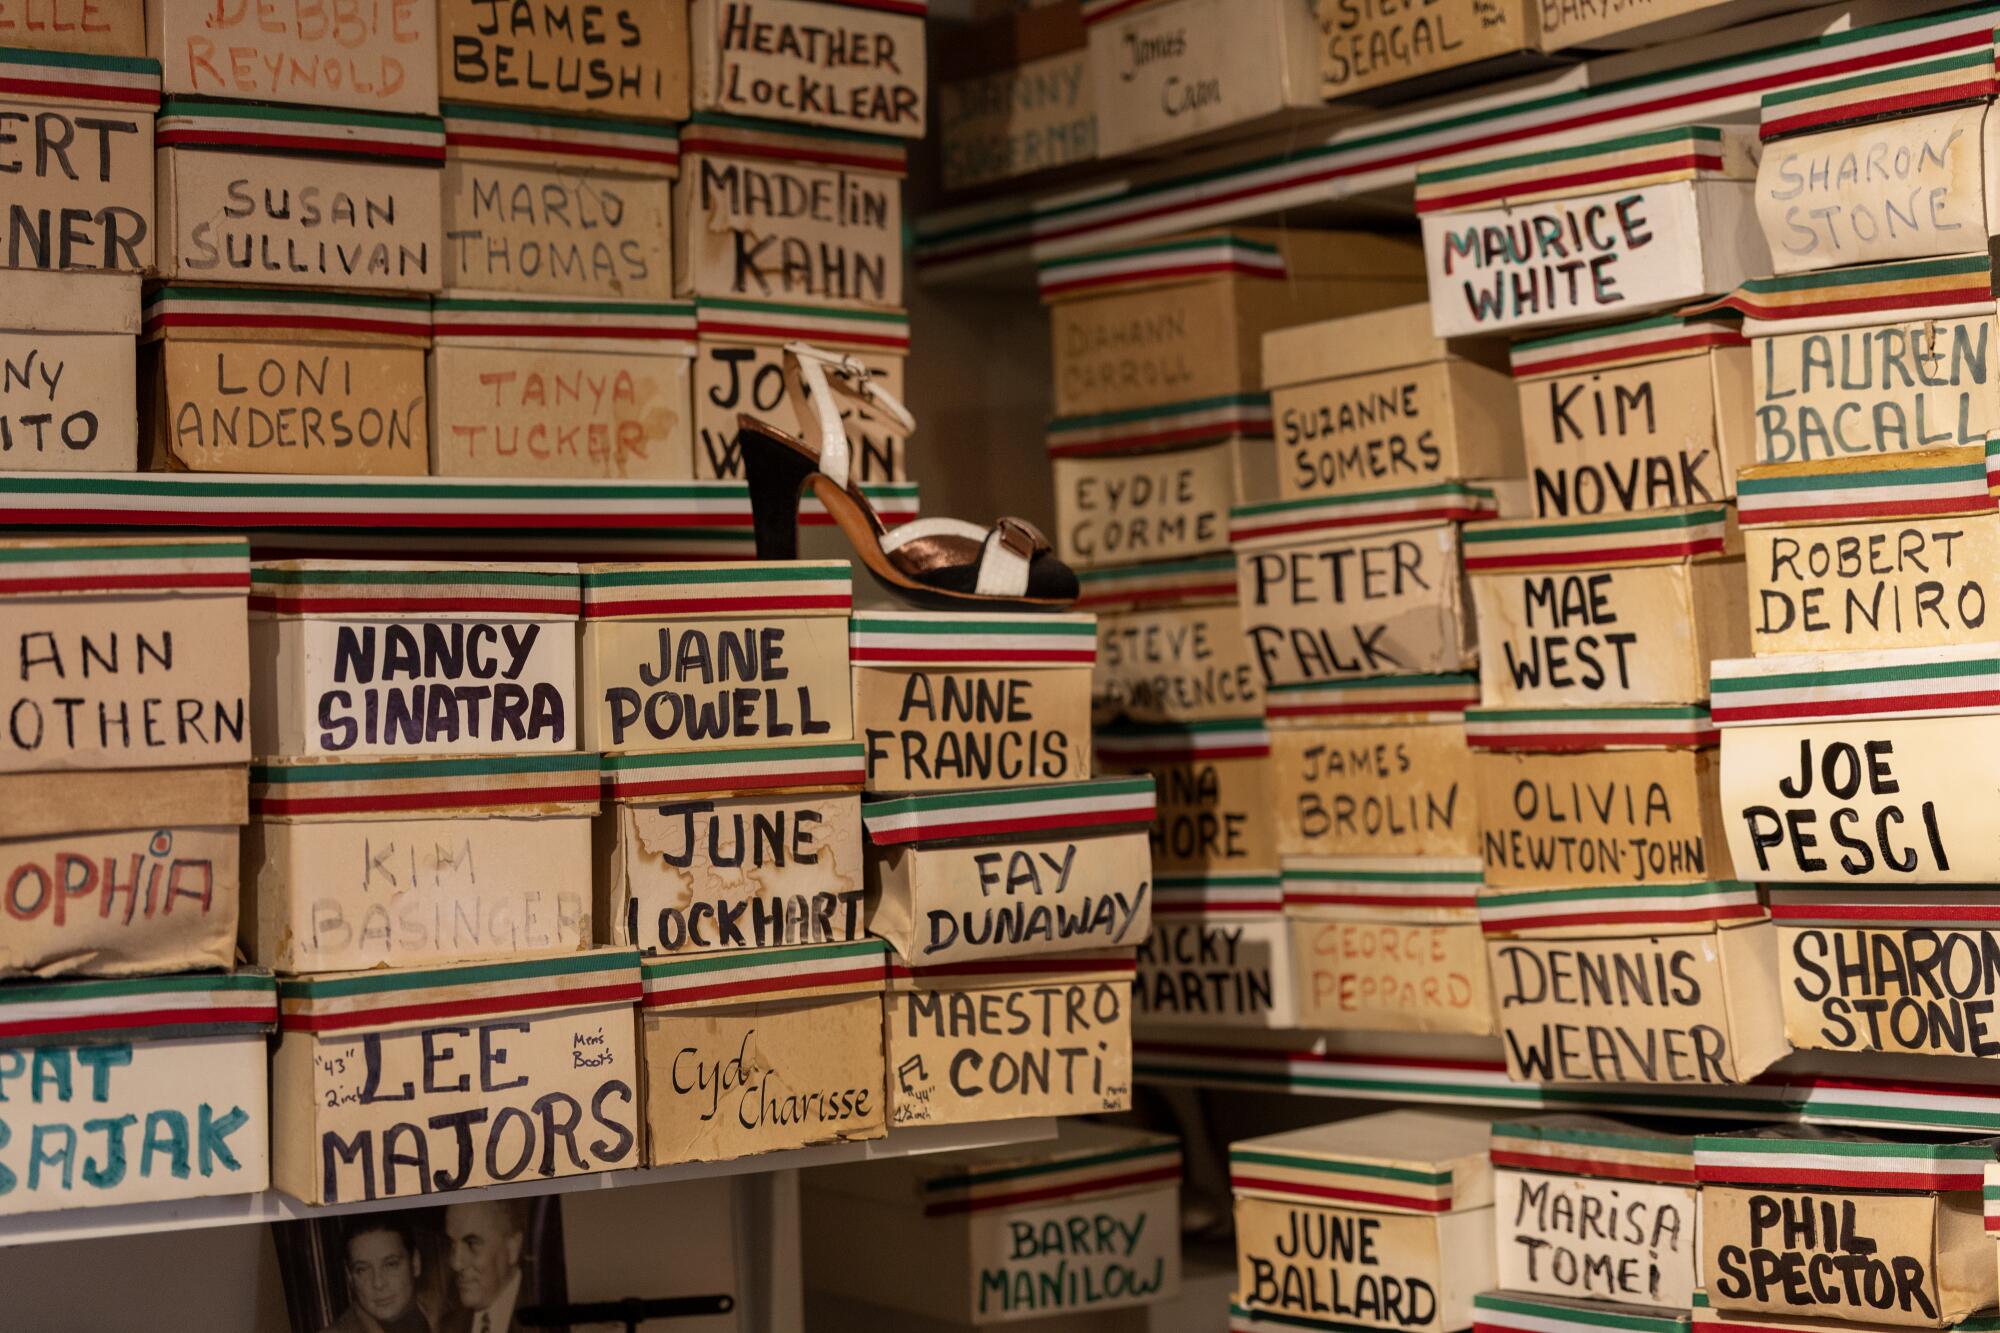 ELLE
DEBBIE
REYNOLD
JAMES
BELUSHI
HEATHER
LOCKLEAR
ERT
NER
SUSAN
SULLIVAN
MARLO
THOMAS
MADELIN
KAHN
NY
ITO
LONI
ANDERSON
TANYA
TUCKER
JO
W N
ANN
OTHERN
NANCY
SINATRA
JANE
POWELL
ANNE
FRANCIS
OPHIA
KIM
BASINGER
JUNE
LOCKHART
FAY
DUNAWAY
PAT
SAJAK
"43"
2inch
LEE
Men's
Boot's
MAJORS
Cyd
Charisse
MAESTRO
CONTI
"44"
4½inch
DANNY
SUGERMAN
James
Caan
STEVE
SEAGAL
BARYS
MAURICE
WHITE
SHARON
STONE
DIAHANN
CARROLL
SUZANNE
SOMERS
KIM
NOVAK
LAUREN
BACALL
EYDIE
GORME
PETER
FALK
MAE
WEST
ROBERT
DENIRO
STEVE
LAWRENCE
JAMES
BROLIN
OLIVIA
NEWTON-JOHN
JOE
PESCI
INA
HORE
RICKY
MARTIN
GEORGE
PEPPARD
DENNIS
WEAVER
SHARON
STONE
BARRY
MANILOW
JUNE
BALLARD
MARISA
TOMEI
PHIL
SPECTOR